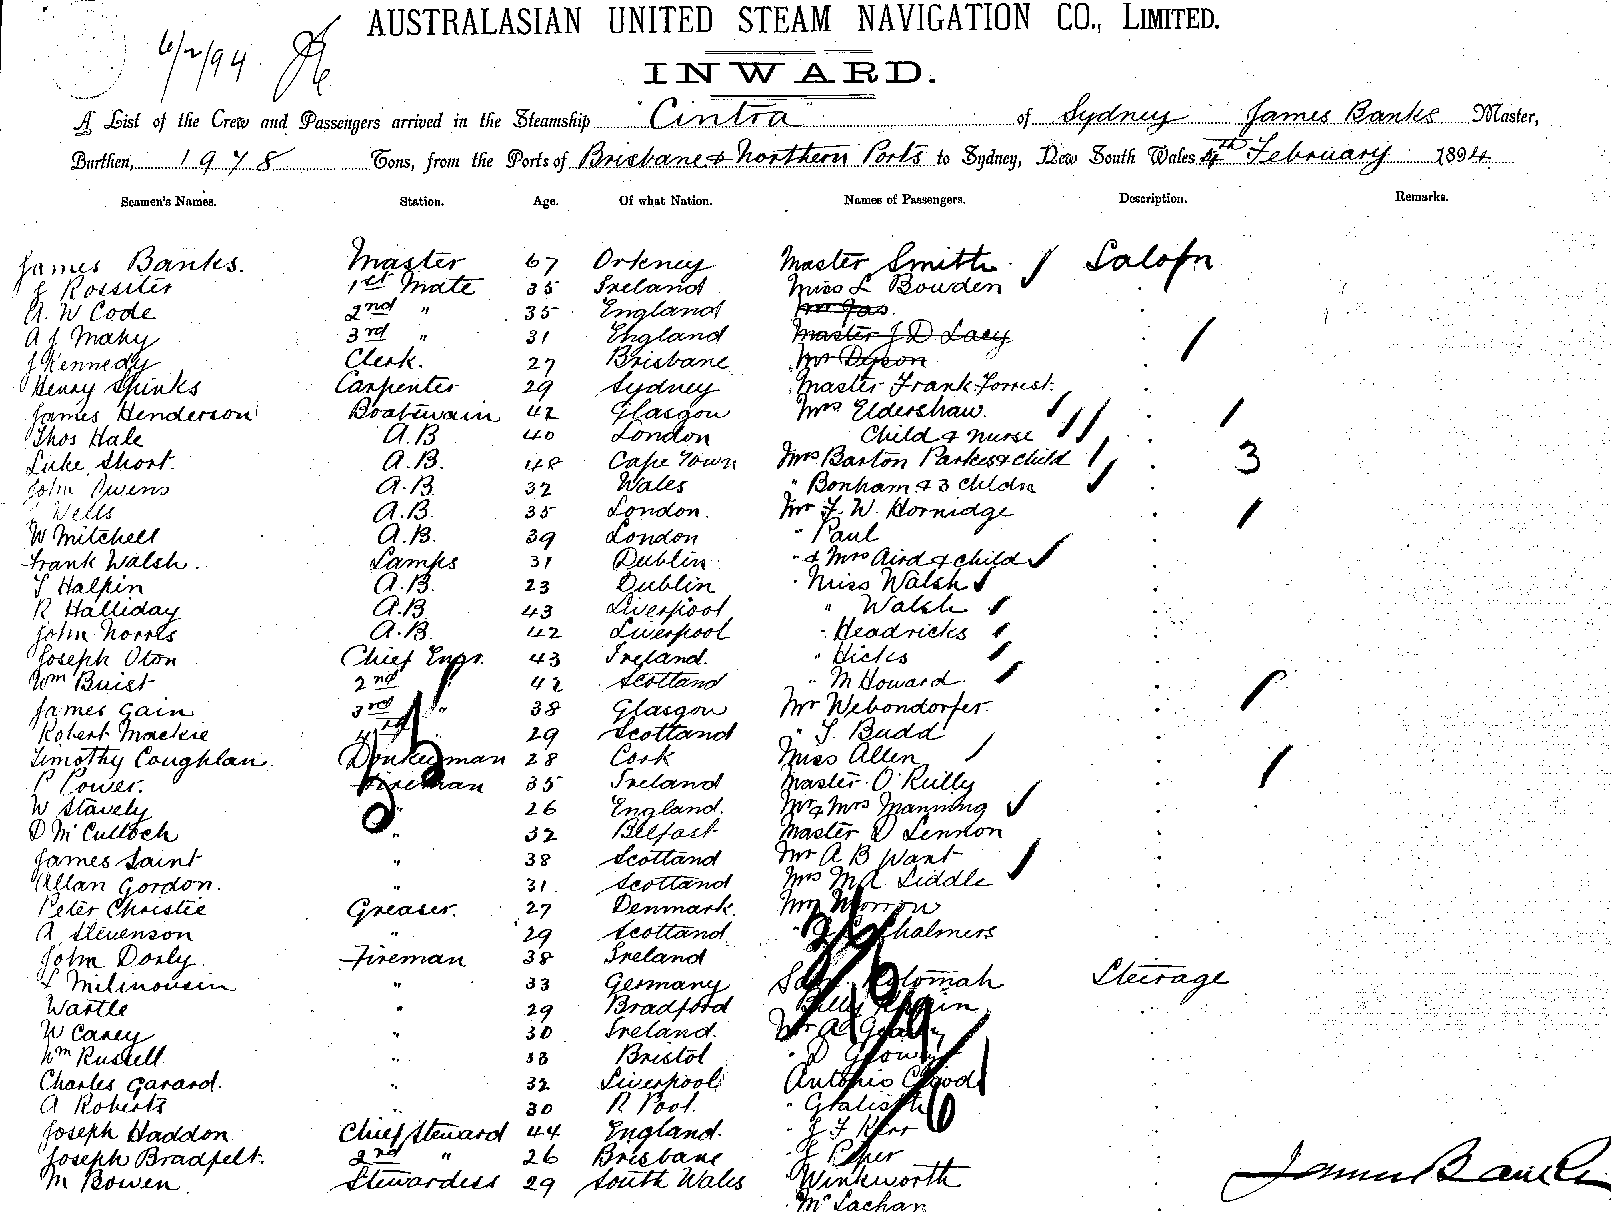 AUSTRALASIAN UNITED STEAM NAVIGATION CO., LIMITED.
6/2/94
INWARD.
A List of the Crew and Passengers arrived in the Steamship "Cintra" of Sydney James Banks Master,
Burthen, 1978 Tons, from the Ports of Brisbane & Northern Ports to Sydney, New South Wales 4th February 1894
Seamen's Names. Station. Age. Of what Nation. Names of Passengers. Description. Remarks.
James Banks. Master 67 Orkney Master Smith Saloon
J Rossiter 1st Mate 35 Ireland Miss L Bowden
A. W Code 2nd " 35 England Mr Jas.
A J Mahy 3rd " 31 England Master J D Lacy
J Kennedy Clerk. 27 Brisbane Mr Dyson
Henry Spinks Carpenter 29 Sydney Master Frank Forrest.
James Henderson Boatswain 42 Glasgow Mrs Eldershaw. 1
Thos Hale A.B 40 London Child & nurse
Luke Short. A.B. 48 Cape Town Mrs Barton Parkes & child 3
John Owens A.B. 32 Wales " Bonham & 3 Childn
Wells A.B. 35 London. Mr F. W. Hornidge 1
W Mitchell A.B. 39 London " Paul
Frank Walsh. Lamps 31 Dublin " & Mrs Aird & child
T Halpin A.B. 23 Dublin Miss Walsh
R Halliday A.B 43 Liverpool " Walsh
John Norris A.B. 42 Liverpool " Headricks
Joseph Oton Chief Engr. 43 Ireland. " Hicks
Wm Buist 2nd " 42 Scotland " M Howard
James Gain 3rd " 38 Glasgow Mr Webondorfer
Robert Mackie 4th 29 Scotland " T. Budd
Timothy Coughlan Donkeyman 28 Cork Miss Allen
P Power. Fireman 35 Ireland Master O'Reilly
W Stavely " 26 England. Mr & Mrs Manning
D McCulloch " 32 Belfast Master D Lennon
James Saint " 38 Scotland Mr A B Want
Allan Gordon. " 31 Scotland Mrs MA Liddle
Peter Christie Greaser. 27 Denmark. Morrow
A Stevenson " 29 Scotland Chalmers
John Dorly. Fireman 38 Ireland
" 33 Germany Steerage
Wartle " 29 Bradford Billy
W Carey " 30 Ireland.
Wm Russell " 33 Bristol " D
Charles Garard. " 32 Liverpool Antonio
A Roberts " 30 R Pool.
Joseph Haddon Chief Steward 44 England. " J F Kerr
Joseph Bradfelt. 2nd " 26 Brisbane " J Piper
M Bowen Stewardess 29 South Wales Winkworth
McLachan
James Banks